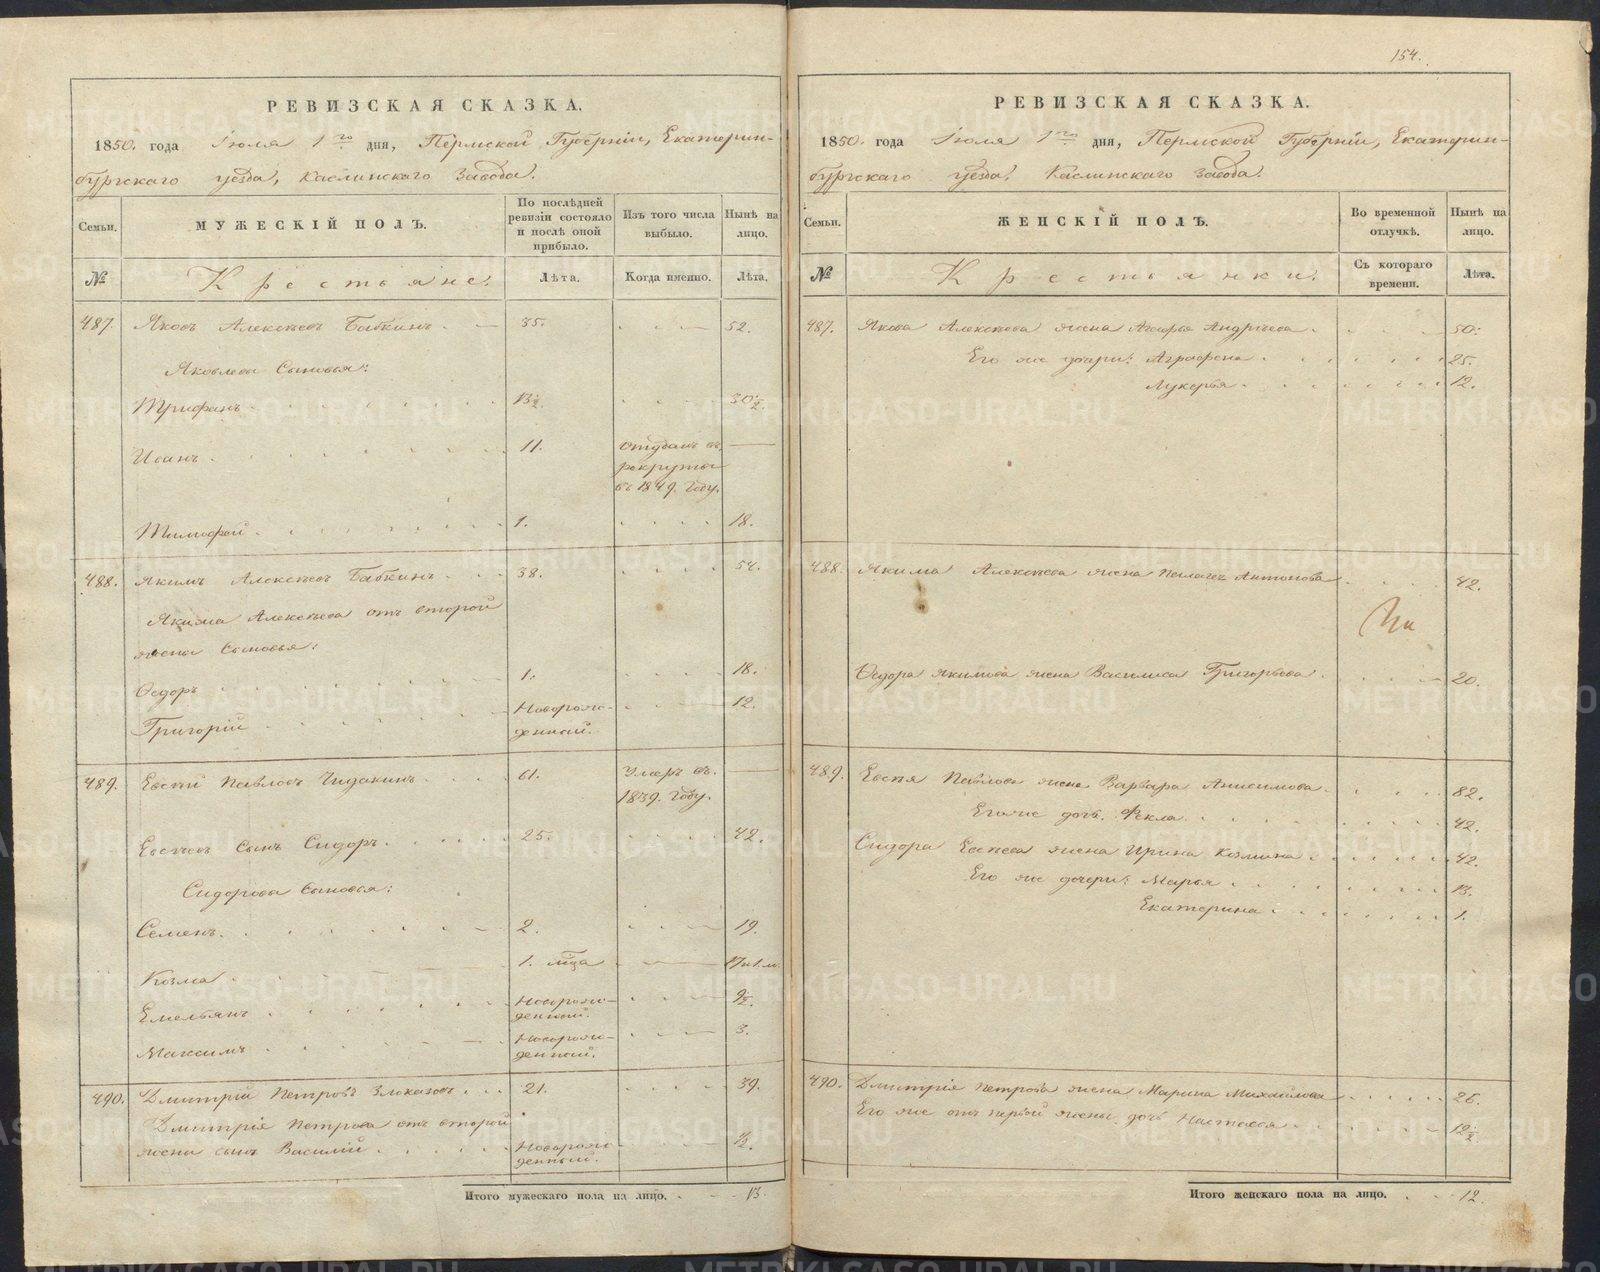 РЕВИЗСКАЯ СКАЗКА.
1850. года Іюля 1го дня, Пермской Губерніи, Екатерин-
бургскаго уѣзда, Каслинскаго Завода.
Семьи.
МУЖЕСКІЙ ПОЛЪ.
По послѣдней
ревизіи состояло
и послѣ оной
прибыло.
Изъ того числа
выбыло.
Нынѣ на
лицо.
№
Крестьяне.
Лѣта.
Когда именно.
Лѣта.
487. Яковъ Алексѣевъ Бабкинъ. 35. 52.
Яковлевы Сыновья:
Трифанъ. 13½. 30½.
Иванъ. 11. Отданъ въ
рекруты
въ 1849. Году.
Тимофей. 1. 18.
488. Якимъ Алексѣевъ Бабкинъ. 38. 54.
Якима Алексѣева отъ второй
жены Сыновья:
Ѳедоръ 1. 18.
Григорій Новорож- 12.
денный.
489. Евсѣй Павловъ Чидакинъ. 61. Умеръ въ
1839. Году.
Евсѣевъ сынъ Сидоръ. 25. 42.
Сидоровы Сыновья:
Семенъ. 2. 19.
Козма. 1. мца 17 и 1. м.
Емельянъ. Новорож- 9½.
денный.
Максимъ. Новорож- 3.
денный.
490. Дмитрій Петровъ Злоказовъ. 21. 39.
Дмитрія Петрова отъ второй
жены сынъ Василій. Новорож- ½.
денный.
Итого мужескаго пола на лицо. 13.
154.
РЕВИЗСКАЯ СКАЗКА.
1850. года Іюля 1го дня, Пермской Губерніи, Екатерин-
бургскаго уѣзда, Каслинскаго Завода.
Семьи.
ЖЕНСКІЙ ПОЛЪ.
Во временной
отлучкѣ.
Нынѣ на
лицо.
№
Крестьянки.
Съ котораго
времени.
Лѣта.
487. Якова Алексѣева жена Агафья Андрѣева. 50.
Его же дочери: Аграфена. 25.
Лукерья. 12.
488. Якима Алексѣева жена Пелагея Антонова 42.
Ѳедора Якимова жена Василиса Григорьева. 20.
489. Евсѣя Павлова жена Варвара Анисимова. 82.
Его же дочь Ѳекла. 42.
Сидора Евсѣева жена Ирина Козмина. 42.
Его же дочери: Марья. 13.
Екатерина. 1.
490. Дмитрія Петрова жена Марина Михайлова 26.
Его же отъ первой жены дочь Настасья. 12½.
Итого женскаго пола на лицо. 12.
METRIKI.GASO-URAL.RU